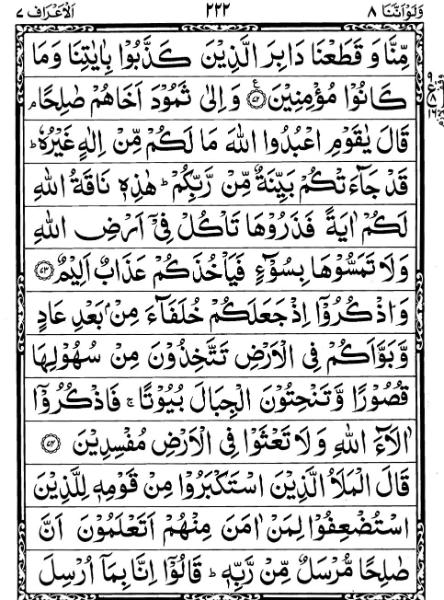 وَلَوْاَنَّنَا ٨ ٢٢٢ اَلْاَعْرَاف ٧
مِّنَّا وَ قَطَعْنَا دَابِرَ الَّذِيْنَ كَذَّبُوْا بِاٰيٰتِنَا وَمَا
كَانُوْا مُؤْمِنِيْنَ ﴿٧٢﴾ وَ اِلٰى ثَمُوْدَ اَخَاهُمْ صٰلِحًا ۘ
قَالَ يٰقَوْمِ اعْبُدُوا اللّٰهَ مَا لَكُمْ مِّنْ اِلٰهٍ غَيْرُهٗ ؕ
قَدْ جَآءَتْكُمْ بَيِّنَةٌ مِّنْ رَّبِّكُمْ ؕ هٰذِهٖ نَاقَةُ اللّٰهِ
لَكُمْ اٰيَةً فَذَرُوْهَا تَاْكُلْ فِيْۤ اَرْضِ اللّٰهِ
وَلَا تَمَسُّوْهَا بِسُوْٓءٍ فَيَاْخُذَكُمْ عَذَابٌ اَلِيْمٌ ﴿٧٣﴾
وَ اذْكُرُوْۤا اِذْ جَعَلَكُمْ خُلَفَآءَ مِنْۢ بَعْدِ عَادٍ
وَّ بَوَّاَكُمْ فِي الْاَرْضِ تَتَّخِذُوْنَ مِنْ سُهُوْلِهَا
قُصُوْرًا وَّ تَنْحِتُوْنَ الْجِبَالَ بُيُوْتًا ۚ فَاذْكُرُوْۤا
اٰلَآءَ اللّٰهِ وَ لَا تَعْثَوْا فِي الْاَرْضِ مُفْسِدِيْنَ ﴿٧٤﴾
قَالَ الْمَلَاُ الَّذِيْنَ اسْتَكْبَرُوْا مِنْ قَوْمِهٖ لِلَّذِيْنَ
اسْتُضْعِفُوْا لِمَنْ اٰمَنَ مِنْهُمْ اَتَعْلَمُوْنَ اَنَّ
صٰلِحًا مُّرْسَلٌ مِّنْ رَّبِّهٖ ؕ قَالُوْۤا اِنَّا بِمَاۤ اُرْسِلَ